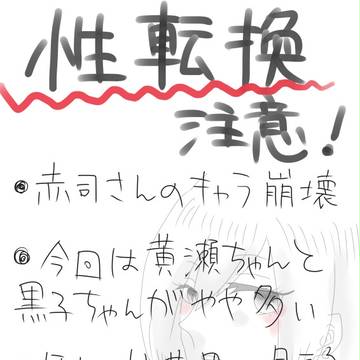 性転換
注意!
●赤司さんのキャラ崩壊
●今回は黄瀬ちゃんと
黒子ちゃんがやや多い